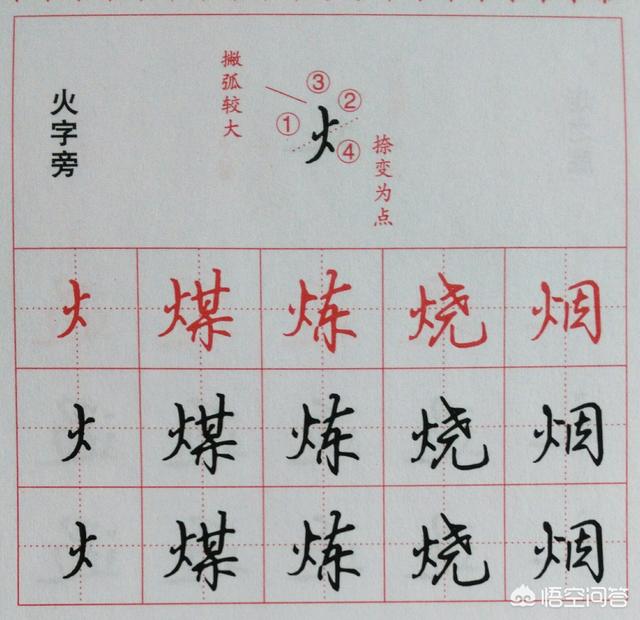 火字旁
撇弧较大
③
②
①
④
火
捺变为点
火 煤 炼 烧 烟
火 煤 炼 烧 烟
火 煤 炼 烧 烟
悟空问答